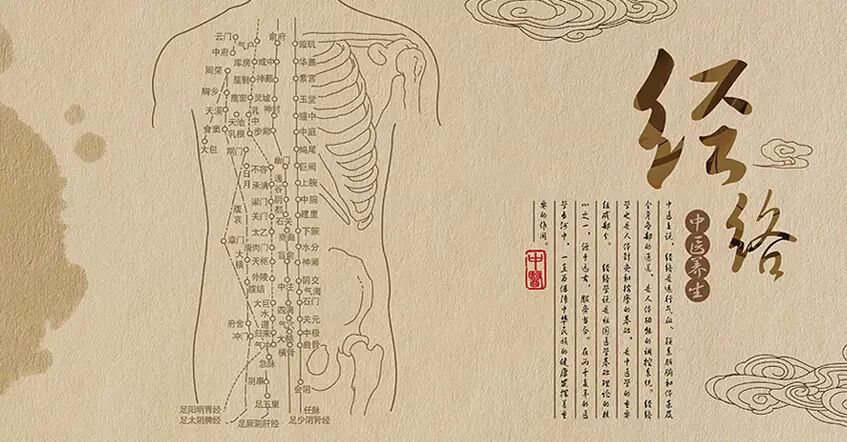 云门
气户
俞府
璇玑
中府
库房
彧中
华盖
周荣
屋翳
神藏
紫宫
胸乡
膺窗
灵墟
玉堂
天溪
天池
乳中
神封
膻中
食窦
乳根
步廊
中庭
大包
期门
鸠尾
日月
不容
幽门
巨阙
承满
通谷
上脘
腹哀
梁门
阴都
中脘
关门
石关
建里
章门
太乙
商曲
下脘
滑肉门
水分
大横
天枢
肓俞
神阙
外陵
阴交
腹结
中注
气海
大巨
四满
石门
府舍
水道
气穴
关元
冲门
归来
大赫
中极
气冲
横骨
曲骨
急脉
阴廉
会阴
足五里
足阳明胃经
任脉
足太阴脾经
足厥阴肝经
足少阴肾经
经络
中医养生
中医上说，经络是运行气血、联系脏腑和体表及
全身各部的通道，是人体功能的调控系统。经络
学也是人体针灸和按摩的基础，是中医学的重要
组成部分。 经络学说是祖国医学基础理论的核
心之一，源于远古，服务当今。在两千多年的医
学长河中，一直为保障中华民族的健康发挥着重
要的作用。
中醫